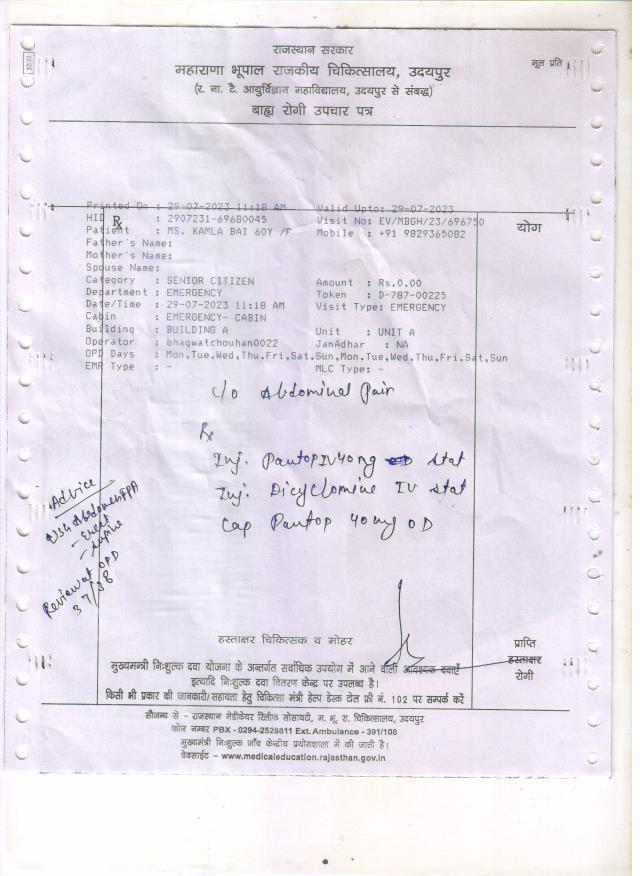 राजस्थान सरकार
महाराणा भूपाल राजकीय चिकित्सालय, उदयपुर
मूल प्रति
(र. ना. टै. आयुर्विज्ञान महाविद्यालय, उदयपुर से संबद्ध)
बाह्य रोगी उपचार पत्र
Printed On : 29-07-2023 11:18 AM Valid Upto: 29-07-2023
HID : 2907231-69680045 Visit No: EV/MBGH/23/696750
Rx
योग
Patient : MS. KAMLA BAI 60Y /F Mobile : +91 9829365082
Father's Name:
Mother's Name:
Spouse Name:
Category : SENIOR CITIZEN Amount : Rs.0.00
Department : EMERGENCY Token : D-787-00225
Date/Time : 29-07-2023 11:18 AM Visit Type: EMERGENCY
Cabin : EMERGENCY- CABIN
Building : BUILDING A Unit : UNIT A
Operator : bhagwatchouhan0022 JanAdhar : NA
OPD Days : Mon,Tue,Wed,Thu,Fri,Sat,Sun,Mon,Tue,Wed,Thu,Fri,Sat,Sun
EMR Type : - MLC Type: -
c/o Abdominal Pain
Rx
Inj. Pantop IV 40 mg stat
Inj. Dicyclomine IV stat
Cap Pantop 40 mg OD
Advice
USG Abdomen FPA
- Erect
- Supine
Review at OPD
37/38
हस्ताक्षर चिकित्सक व मोहर
प्राप्ति
हस्ताक्षर
रोगी
मुख्यमन्त्री निःशुल्क दवा योजना के अन्तर्गत सर्वाधिक उपयोग में आने वाली आवश्यक दवाएँ
इत्यादि निःशुल्क दवा वितरण केन्द्र पर उपलब्ध है।
किसी भी प्रकार की जानकारी/सहायता हेतु चिकित्सा मंत्री हेल्प डेस्क टोल फ्री नं. 102 पर सम्पर्क करें
सौजन्य से - राजस्थान मेडीकेयर रिलीफ सोसायटी, म. भू. रा. चिकित्सालय, उदयपुर
फोन नम्बर PBX - 0294-2528811 Ext. Ambulance - 391/108
मुख्यमंत्री निःशुल्क जाँच केन्द्रीय प्रयोगशाला में की जाती है।
वेबसाईट - www.medicaleducation.rajasthan.gov.in